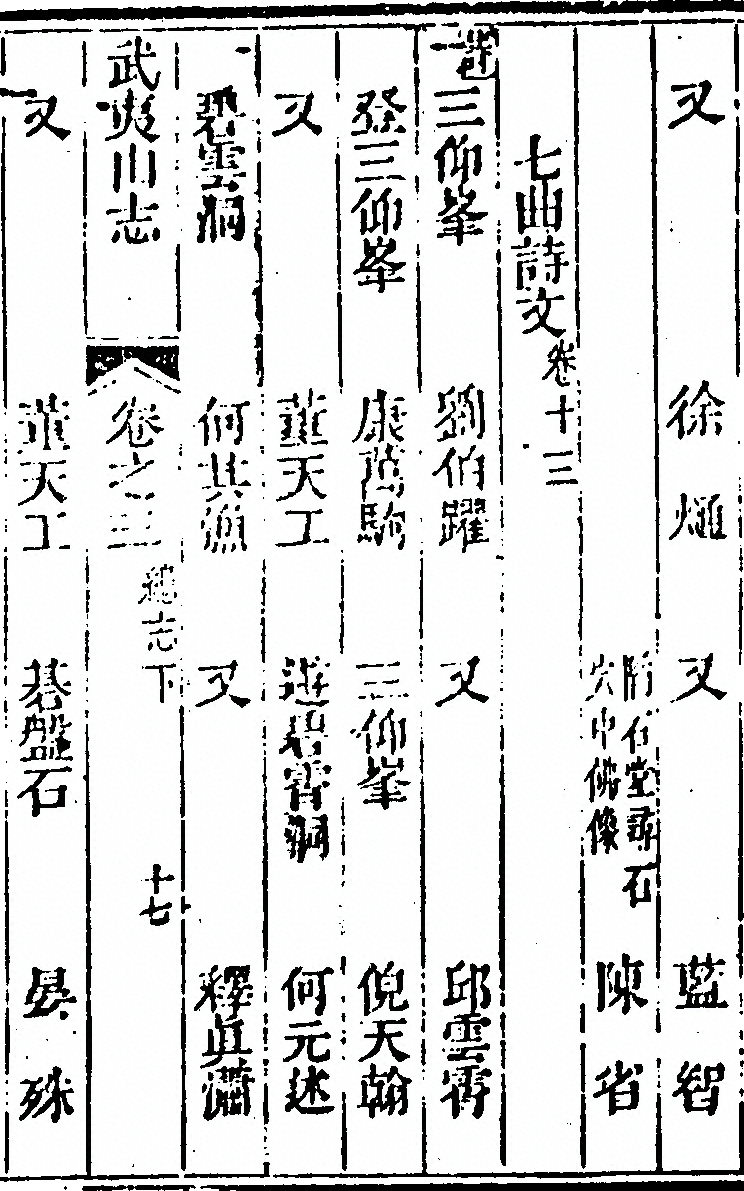 又 徐𤊹 又 藍智
陷石堂尋石尖中佛像 陳省
七曲詩文 卷十三
三仰峯 劉伯躍 又 邱雲霄
登三仰峯 康萬駒 三仰峯 倪天翰
又 董天工 遊碧霄洞 何元述
碧雲洞 何其漁 又 釋眞瀾
武夷山志 卷之三 總志下 十七
又 董天工 碁盤石 晏殊